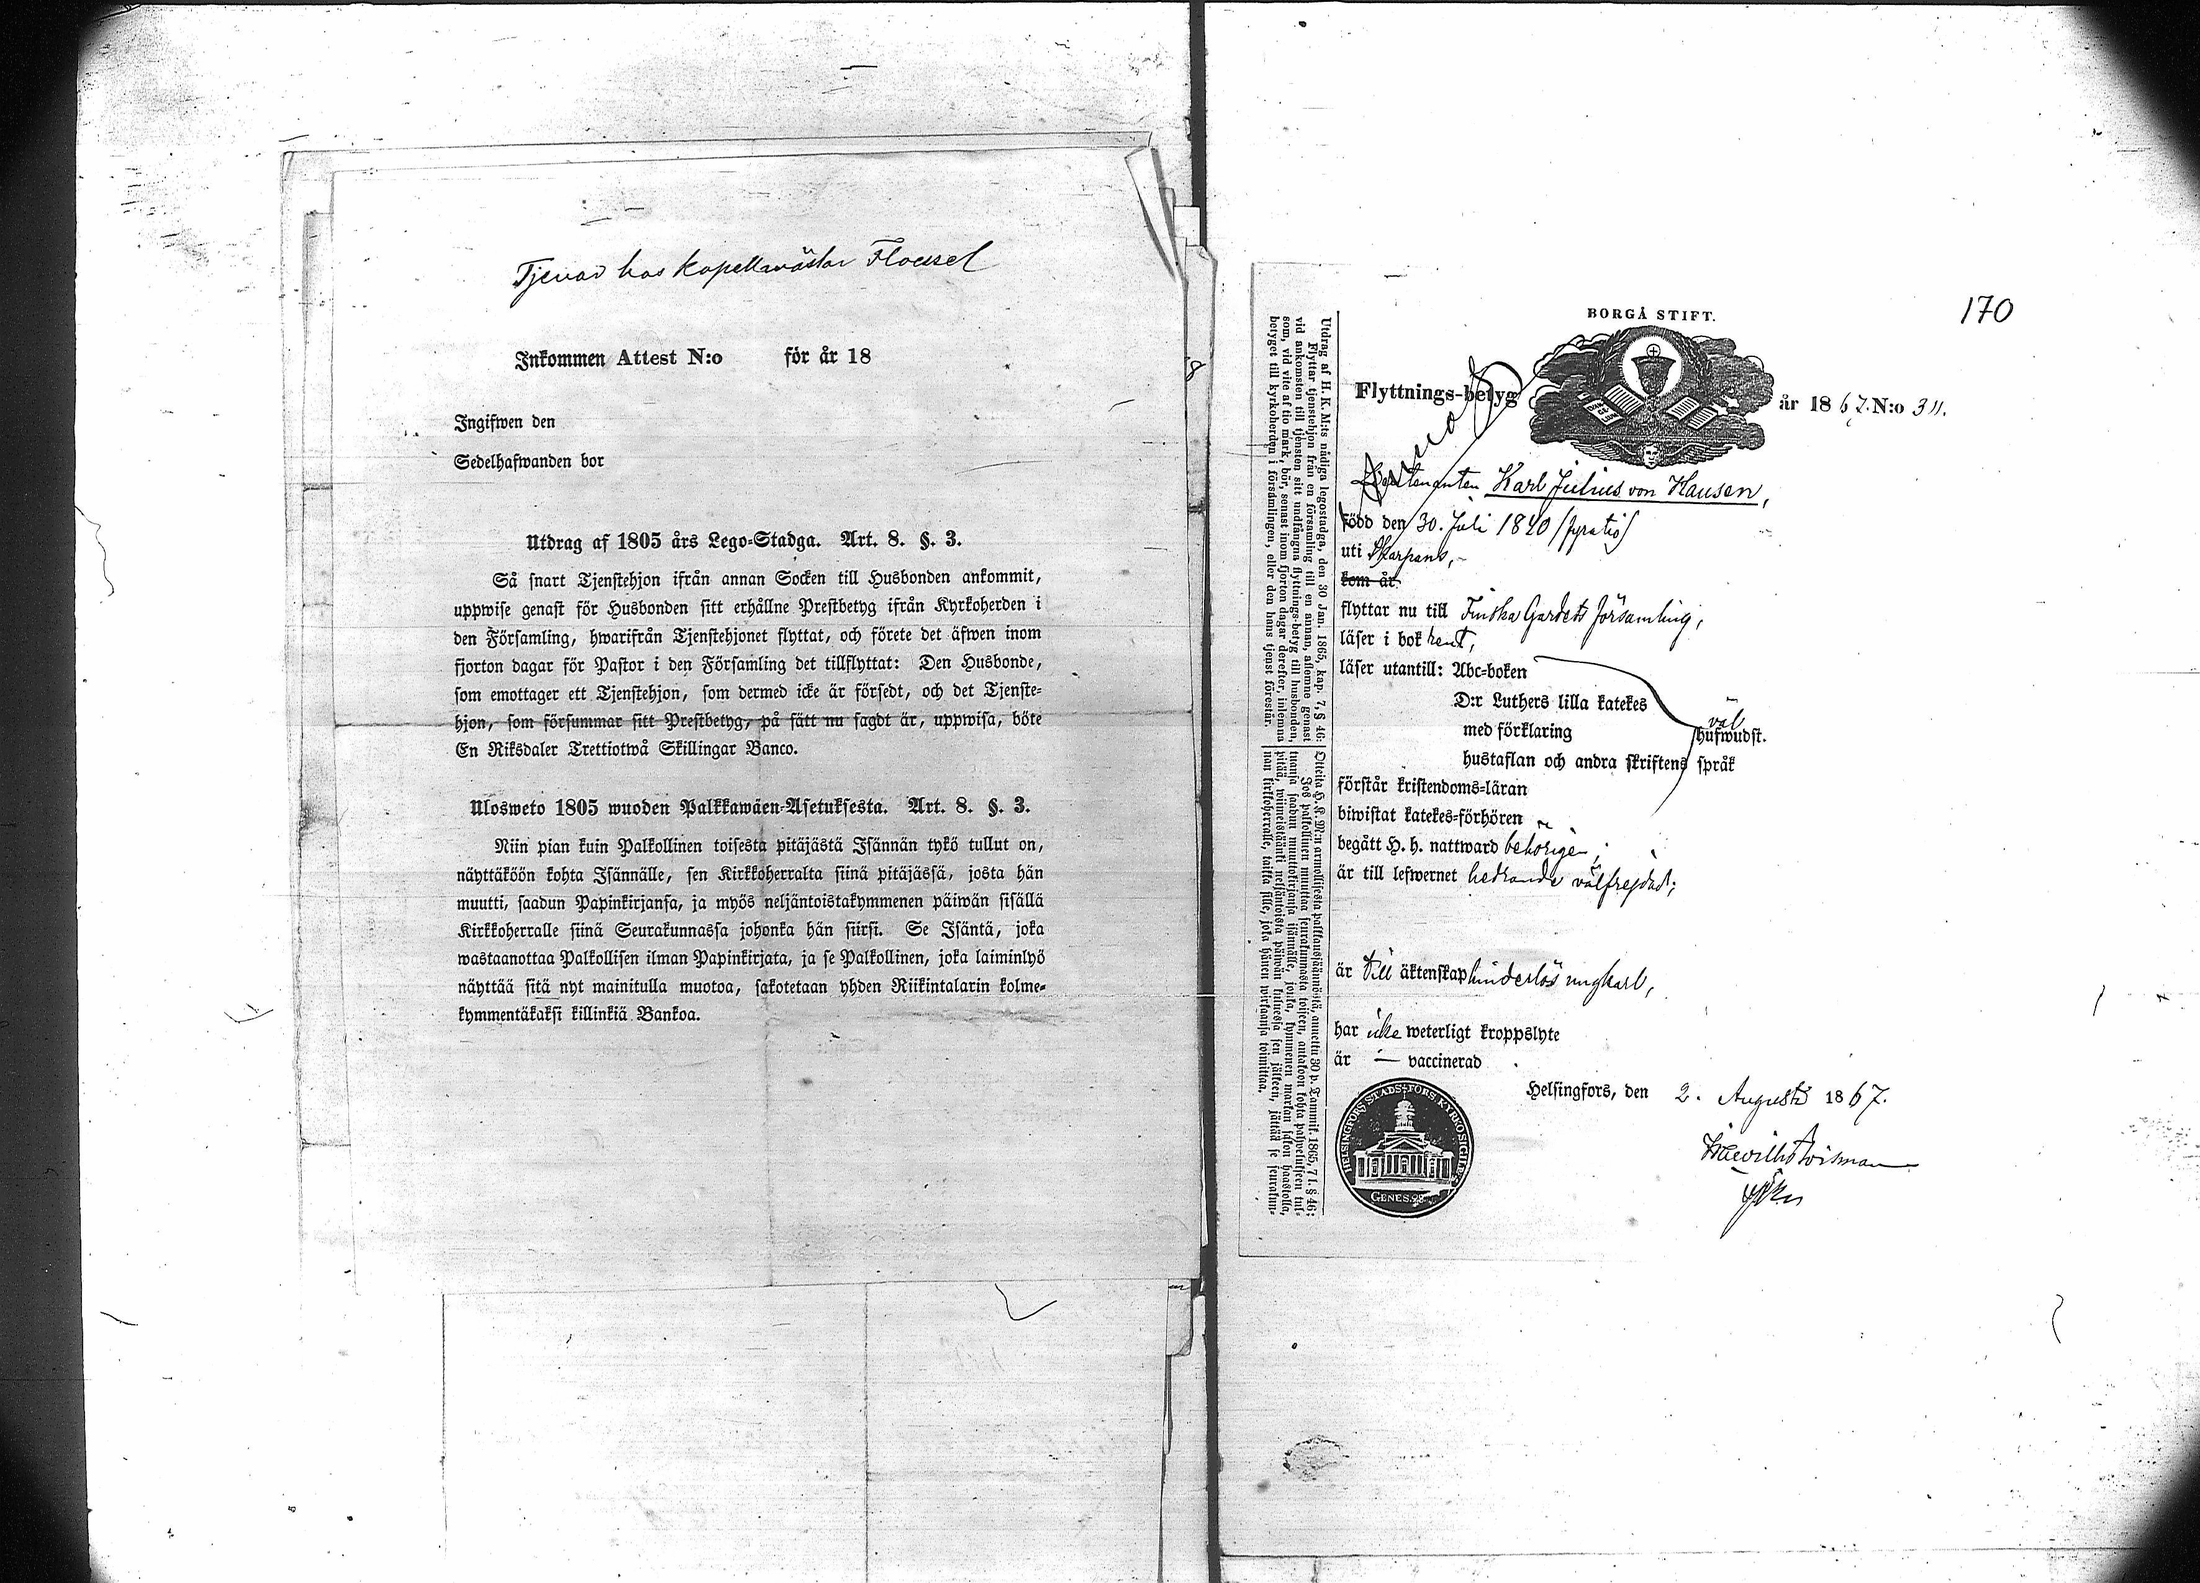 Tjenar hos kapellmästar Floessel
Inkommen Attest N:o för år 18
Ingifwen den
Sedelhafwanden bor
Utdrag af 1805 års Lego-Stadga. Art. 8. §. 3.
Så snart Tjenstehjon ifrån annan Socken till Husbonden ankommit,
uppwise genast för Husbonden sitt erhållne Prestbetyg ifrån Kyrkoherden i
den Församling, hwarifrån Tjenstehjonet flyttat, och förete det äfwen inom
fjorton dagar för Pastor i den Församling det tillflyttat: Den Husbonde,
som emottager ett Tjenstehjon, som dermed icke är försedt, och det Tjenste-
hjon, som försummar sitt Prestbetyg, på sätt nu sagdt är, uppwisa, böte
En Riksdaler Trettiotwå Skillingar Banco.
Ulosweto 1805 wuoden Palkkawäen-Asetuksesta. Art. 8. §. 3.
Niin pian kuin Palkollinen toisesta pitäjästä Isännän tykö tullut on,
näyttäköön kohta Isännälle, sen Kirkkoherralta siinä pitäjässä, josta hän
muutti, saadun Papinkirjansa, ja myös neljäntoistakymmenen päiwän sisällä
Kirkkoherralle siinä Seurakunnassa johonka hän siirsi. Se Isäntä, joka
wastaanottaa Palkollisen ilman Papinkirjata, ja se Palkollinen, joka laiminlyö
näyttää sitä nyt mainitulla muotoa, sakotetaan yhden Riikintalarin kolme-
kymmentäkaksi killinkiä Bankoa.
8
170
BORGÅ STIFT.
Flyttnings-betyg år 1867. N:o 311.
Löjtenanten Karl Julius von Hausen,
född den 30. Juli 1840 /fyratio/
uti Skarpans,
kom år
flyttar nu till Finska Gardets församling,
läser i bok rent,
läser utantill: Abc-boken
D:r Luthers lilla katekes
med förklaring väl hufwudst.
hustaflan och andra skriftens språk
förstår kristendoms-läran
biwistat katekes-förhören
begått H. h. nattward behörigen;
är till lefwernet hedrande välfrejdad;
är till äktenskap hinderlös ungkarl,
har icke weterligt kroppslyte
är — vaccinerad
Helsingfors, den 2. Augusti 1867.
HELSINGFORS STADS-FÖRS KYRKO SIGILL
GENES. 28.
Utdrag af H. K. M:ts nådiga legostadga, den 30 Jan. 1865, kap. 7, § 46:
Flyttar tjenstehjon från en församling till en annan, aflemne genast
vid ankomsten till tjensten sitt undfångna flyttnings-betyg till husbonden,
som, vid vite af tio mark, bör, senast inom fjorton dagar derefter, inlemna
betyget till kyrkoherden i församlingen, eller den hans tjenst förestår.
Otteita H. K. M:n armollisesta palkkaussäännöstä, annettu 30 p. Tammik. 1865, 7 l. § 46:
Jos palkollinen muuttaa seurakunnasta toiseen, antakoon kohta palwelukseen tul-